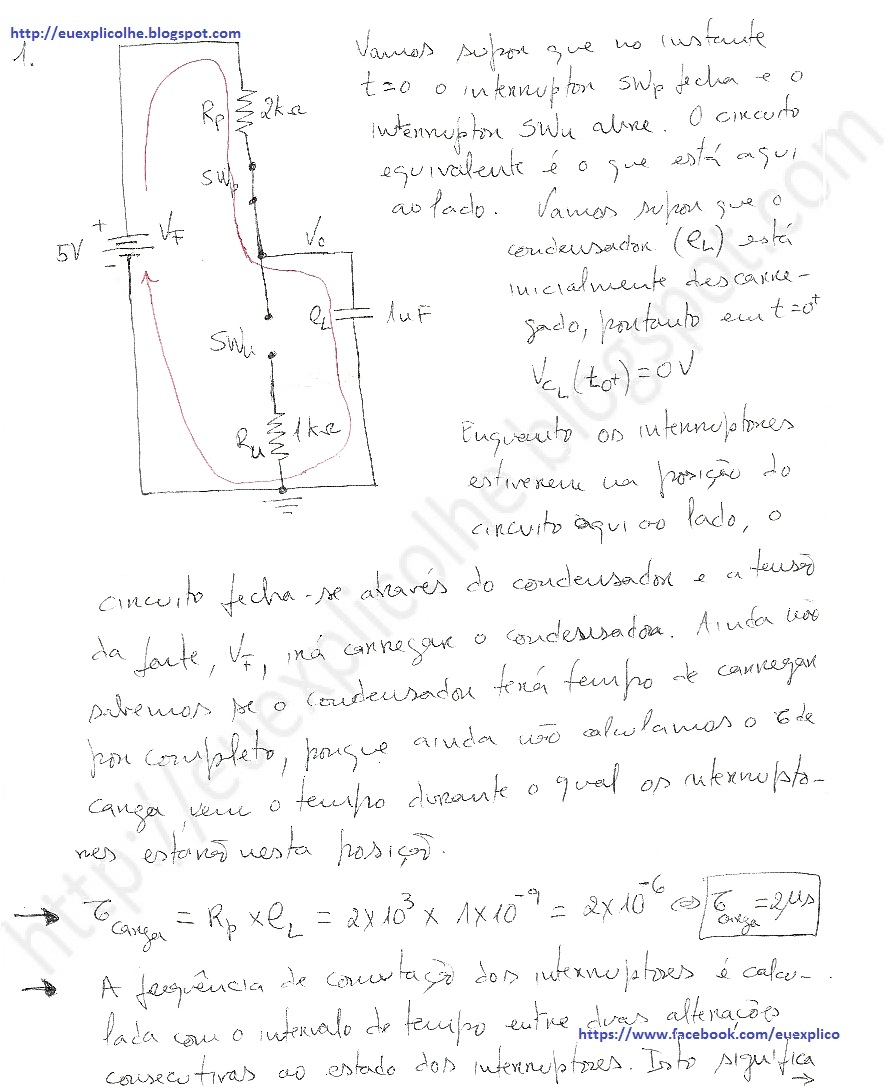 http://euexplicolhe.blogspot.com
1.
Vamos supor que no instante
t=0 o interruptor SWp fecha e o
interruptor SWn abre. O circuito
equivalente é o que está aqui
ao lado. Vamos supor que o
condensador (CL) está
inicialmente descarre-
gado, portanto em t=0⁺
VCL(t0⁺)=0V
Rp 2kΩ
SWp
5V + - VF
Vo
CL 1uF
SWn
Rn 1kΩ
Enquanto os interruptores
estiverem na posição do
circuito aqui ao lado, o
circuito fecha-se através do condensador e a tensão
da fonte, VF, irá carregar o condensador. Ainda não
sabemos se o condensador terá tempo de carregar
por completo, porque ainda não calculamos o τ de
carga, nem o tempo durante o qual os interrupto-
res estarão nesta posição.
→ τcarga = Rp × CL = 2×10³ × 1×10⁻⁹ = 2×10⁻⁶ ⇔ τcarga = 2μs
→ A frequência de comutação dos interruptores é calcu-
lada com o intervalo de tempo entre duas alterações
https://www.facebook.com/euexplico
consecutivas ao estado dos interruptores. Isto significa →
http://euexplicolhe.blogspot.com